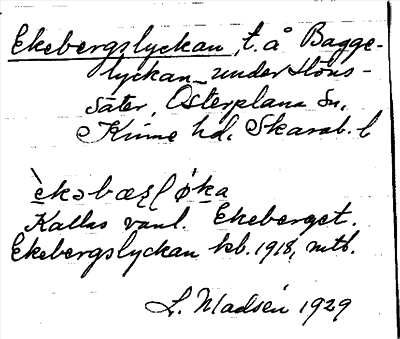 Ekebergslyckan, t. å Bagge-
lyckan under Höns-
säter, Österplana sn,
Kinne hd, Skarab. l
èkəbæʐl ø̀ka
Kallas vanl. Ekeberget.
Ekebergslyckan kb. 1918, mtb.
L. Madsén 1929